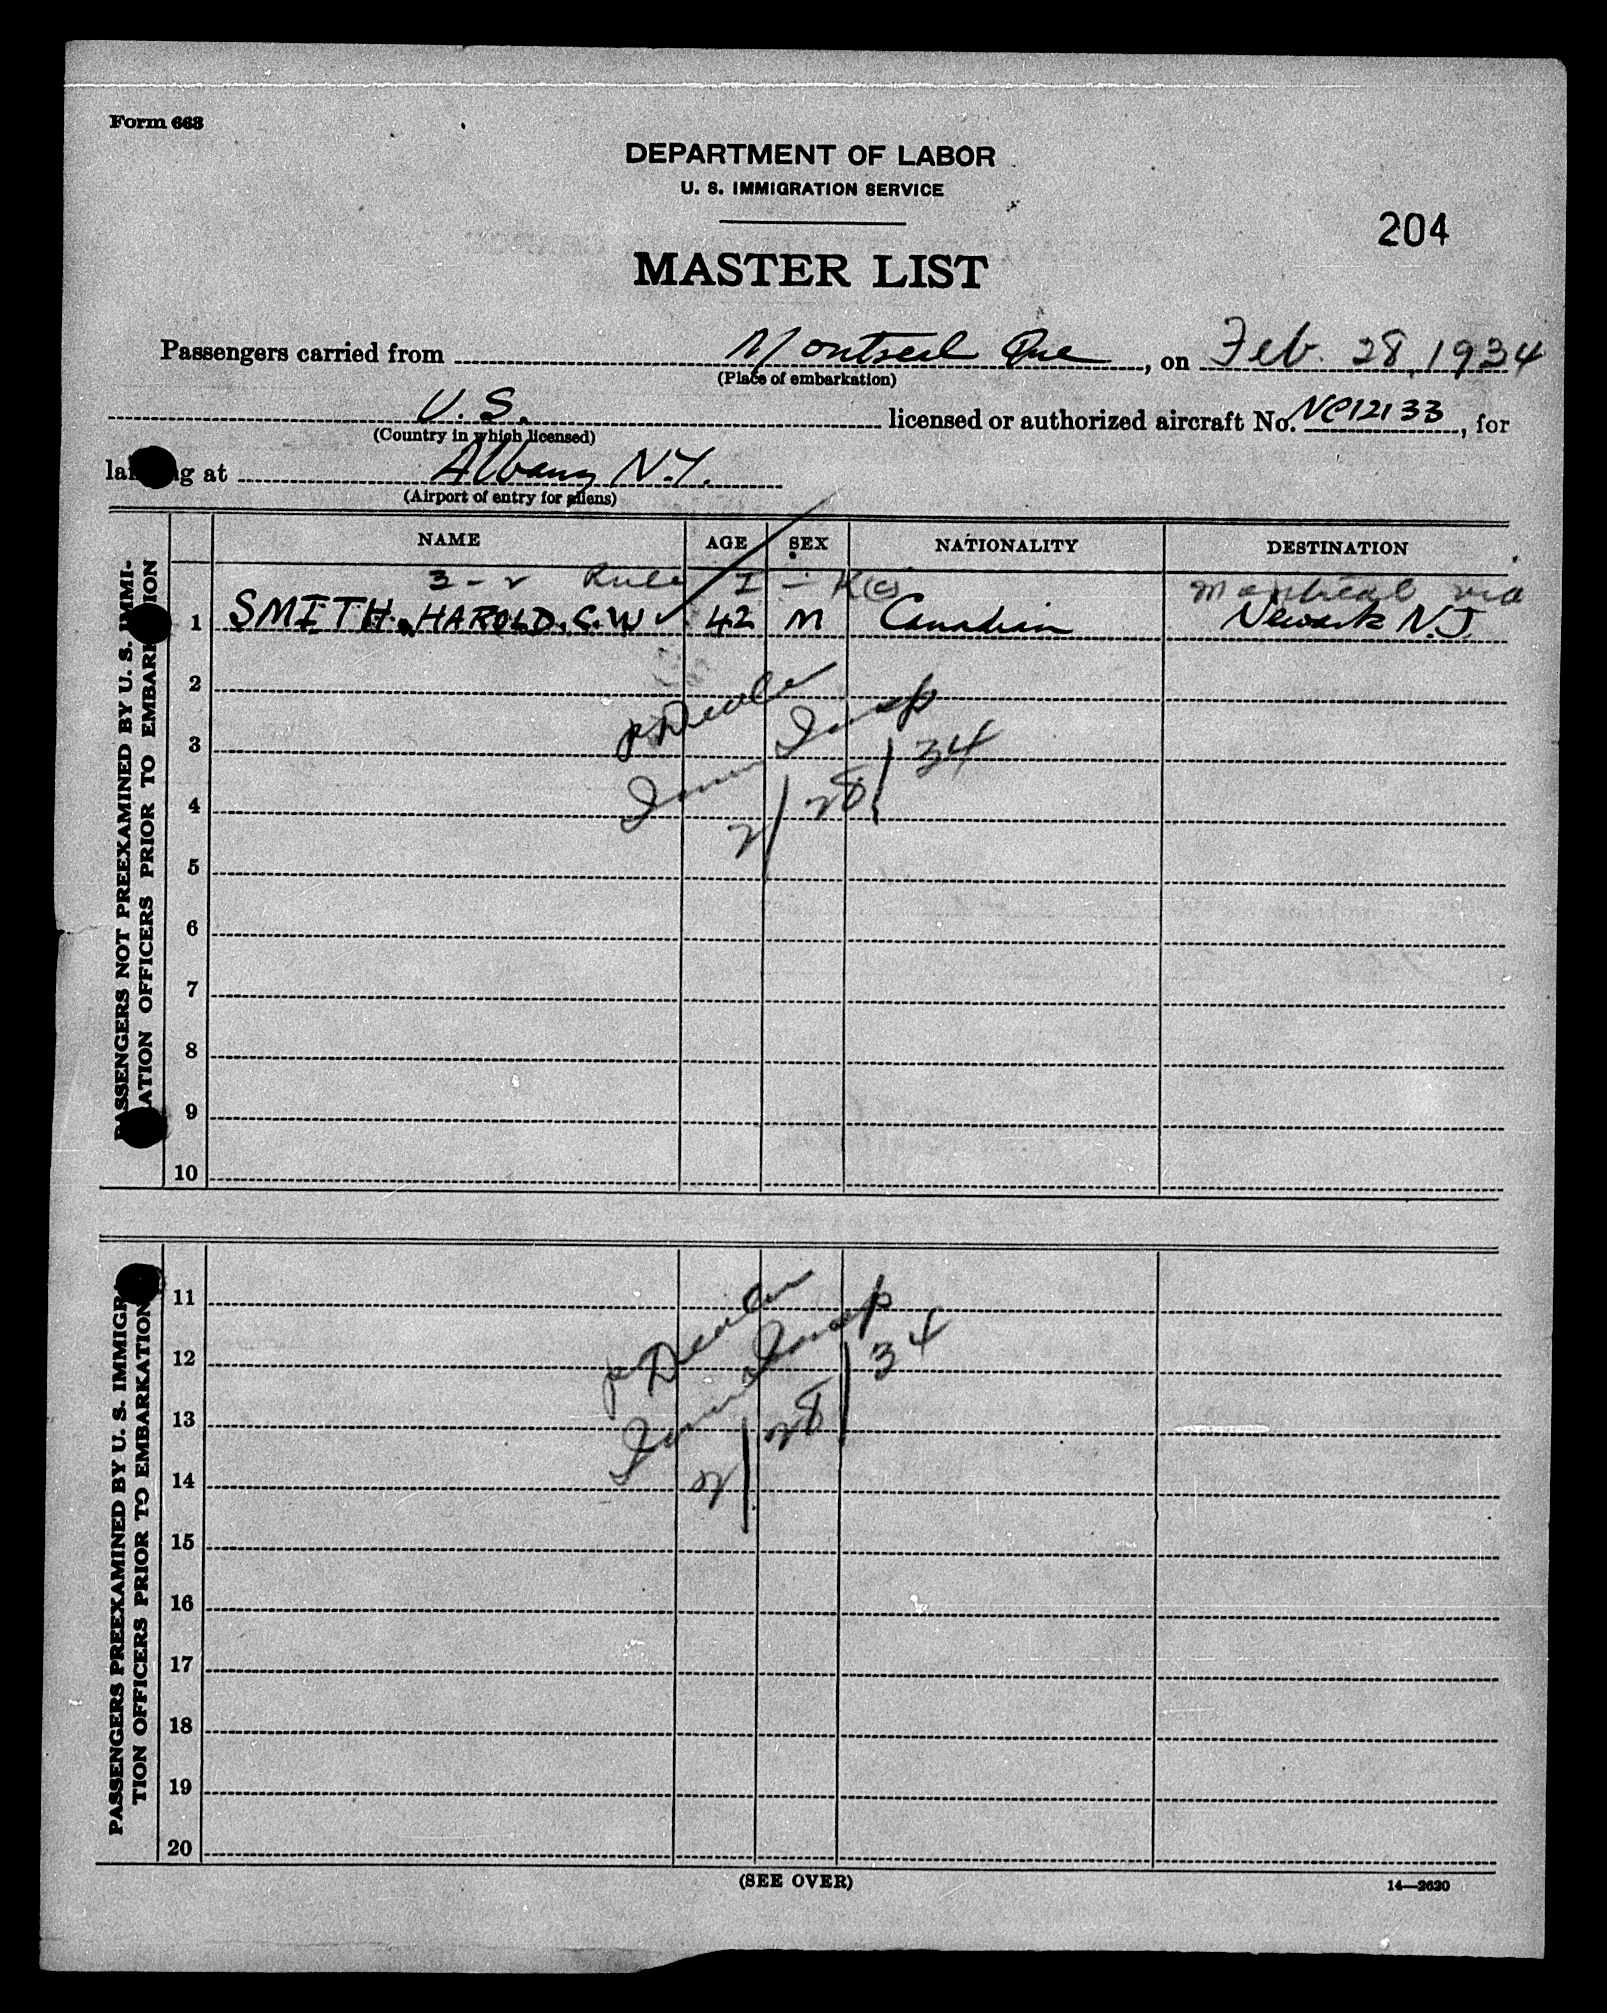 Form 663
DEPARTMENT OF LABOR
U. S. IMMIGRATION SERVICE
204
MASTER LIST
Passengers carried from Montreal Que, on Feb. 28, 1934
(Place of embarkation)
U.S. licensed or authorized aircraft No. NC12133, for
(Country in which licensed)
landing at Albany N.Y.
(Airport of entry for aliens)
NAME AGE SEX NATIONALITY DESTINATION
3-2 Rule I - K(c) Montreal via
1 SMITH, HAROLD. S. W ✓ 42 M Canadian Newark N.J.
2
3
Immn Insp
4
2/28/34
5
6
7
8
9
10
PASSENGERS NOT PREEXAMINED BY U. S. IMMI-
GRATION OFFICERS PRIOR TO EMBARKATION
11
12
Immn Insp
13
2/28/34
14
15
16
17
18
19
20
PASSENGERS PREEXAMINED BY U. S. IMMIGRA-
TION OFFICERS PRIOR TO EMBARKATION
(SEE OVER)
14—2620